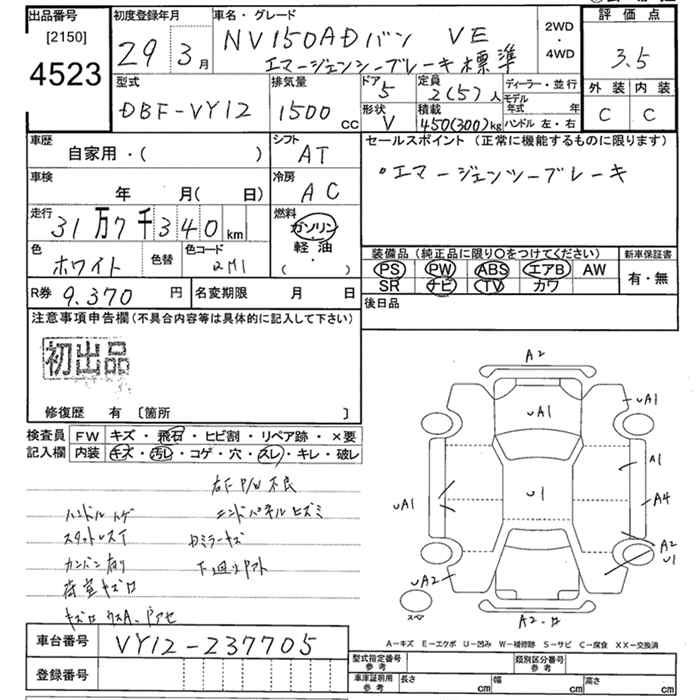 出品番号
[2150]
4523
初度登録年月
29年3月
車名・グレード
NV150ADバン VE
エマージェンシーブレーキ標準
2WD
・
4WD
評価点
3.5
外装 内装
C C
型式
DBF-VY12
排気量
1500 CC
ドア
5
形状
V
定員
2(5)人
積載
450(300)kg
ディーラー・並行
モデル年式 年
ハンドル 左・右
車歴
自家用・( )
シフト
AT
車検
年 月( 日)
冷房
AC
走行
31万7千340km
燃料
ガソリン
軽油
( ・ )
色
ホワイト
色替
色コード
2M1
R券 9,370 円
名変期限 月 日
セールスポイント (正常に機能するものに限ります)
・エマージェンシーブレーキ
装備品 (純正品に限り○をつけてください)
PS PW ABS エアB AW
SR ナビ TV カワ
新車保証書
有・無
後日品
注意事項申告欄(不具合内容等は具体的に記入して下さい)
初出品
修復歴 有 [箇所 ]
検査員
記入欄
FW キズ・飛石・ヒビ割・リペア跡・×要
内装 キズ・汚レ・コゲ・穴・スレ・キレ・破レ
右F P/W不良
ハンドルハゲ
エンドパネルヒズミ
スタットレスT
Dミラーキズ
カンバン有り
下廻りサビ
荷室キズロ
車台番号 VY12-237705
登録番号
A2
UA1
UA1
A1
U1
UA1
A4
A2
U1
UA2
スペア
A2・ロ
A-キズ E-エクボ U-凹み W-補修跡 S-サビ C-腐食 XX-交換済
型式指定番号
参考
類別区分番号
参考
車庫証明用
参考
長さ cm 幅 cm 高さ cm